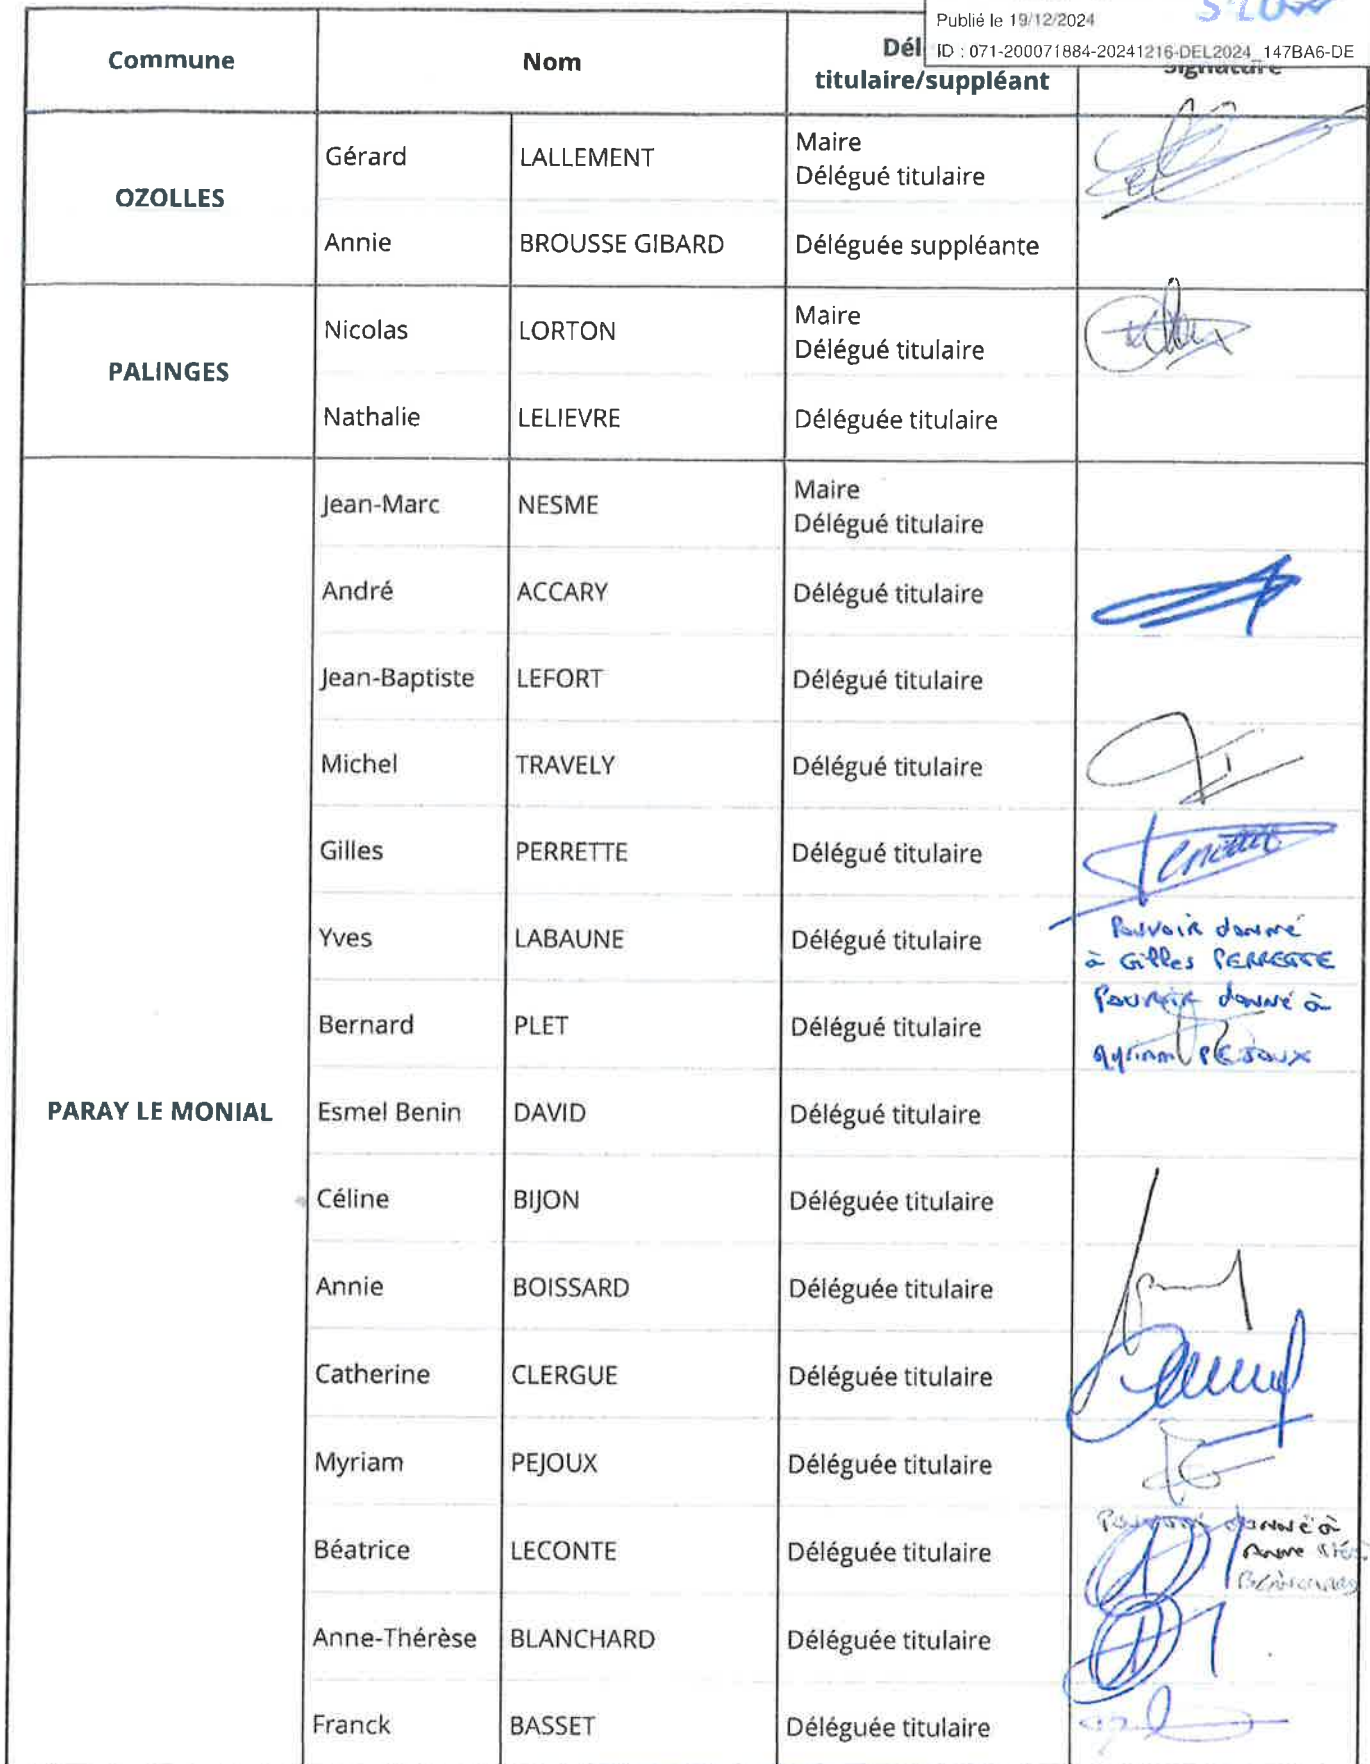 Publié le 19/12/2024
ID : 071-200071884-20241216-DEL2024_147BA6-DE
Commune Nom Dél
titulaire/suppléant Signature
OZOLLES
Gérard LALLEMENT Maire
Délégué titulaire
Annie BROUSSE GIBARD Déléguée suppléante
PALINGES
Nicolas LORTON Maire
Délégué titulaire
Nathalie LELIEVRE Déléguée titulaire
PARAY LE MONIAL
Jean-Marc NESME Maire
Délégué titulaire
André ACCARY Délégué titulaire
Jean-Baptiste LEFORT Délégué titulaire
Michel TRAVELY Délégué titulaire
Gilles PERRETTE Délégué titulaire
Yves LABAUNE Délégué titulaire Pouvoir donné
à Gilles PERRETTE
Bernard PLET Délégué titulaire Pouvoir donné à
Myriam PEJOUX
Esmel Benin DAVID Délégué titulaire
Céline BIJON Déléguée titulaire
Annie BOISSARD Déléguée titulaire
Catherine CLERGUE Déléguée titulaire
Myriam PEJOUX Déléguée titulaire
Béatrice LECONTE Déléguée titulaire Pouvoir donné à
Anne
BLANCHARD
Anne-Thérèse BLANCHARD Déléguée titulaire
Franck BASSET Déléguée titulaire